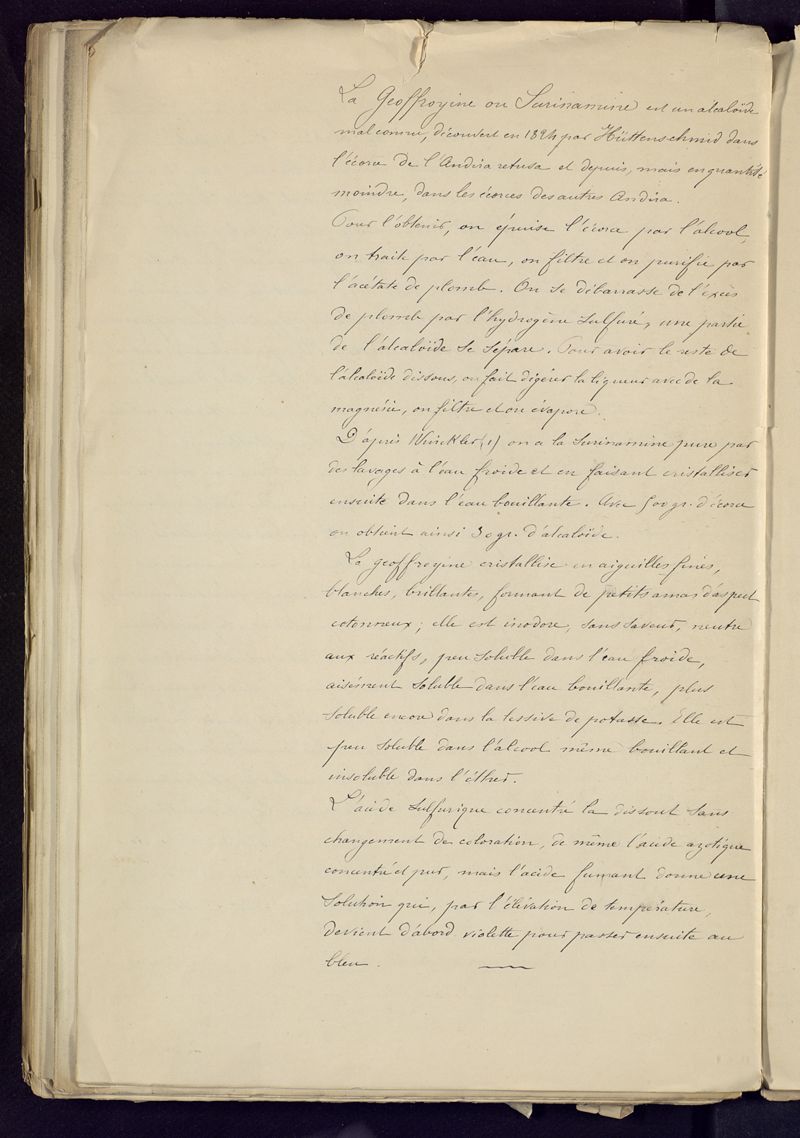 La Geoffroyine ou Surinamine est un alcaloïde
mal connu, découvert en 1824 par Hüttenschmid dans
l'écorce de l'Andira retusa et depuis, mais en quantité
moindre, dans les écorces des autres Andira.
Pour l'obtenir, on épuise l'écorce par l'alcool,
on traite par l'eau, on filtre et on purifie par
l'acétate de plomb. On se débarrasse de l'excès
de plomb par l'hydrogène sulfuré, une partie
de l'alcaloïde se sépare. Pour avoir le reste de
l'alcaloïde dissous, on fait digérer la liqueur avec de la
magnésie, on filtre et on évapore.
D'après Winckler (1) on a la Surinamine pure par
des lavages à l'eau froide et en faisant cristalliser
ensuite dans l'eau bouillante. Avec 500 gr. d'écorce
on obtient ainsi 30 gr. d'alcaloïde.
La geoffroyine cristallise en aiguilles fines,
blanches, brillantes, formant de petits amas d'aspect
cotonneux ; elle est inodore, sans saveur, neutre
aux réactifs, peu soluble dans l'eau froide,
aisément soluble dans l'eau bouillante, plus
soluble encore dans la lessive de potasse. Elle est
peu soluble dans l'alcool même bouillant et
insoluble dans l'éther.
L'acide sulfurique concentré la dissout sans
changement de coloration, de même l'acide azotique
concentré et pur, mais l'acide fumant donne une
solution qui, par l'élévation de température,
devient d'abord violette pour passer ensuite au
bleu.